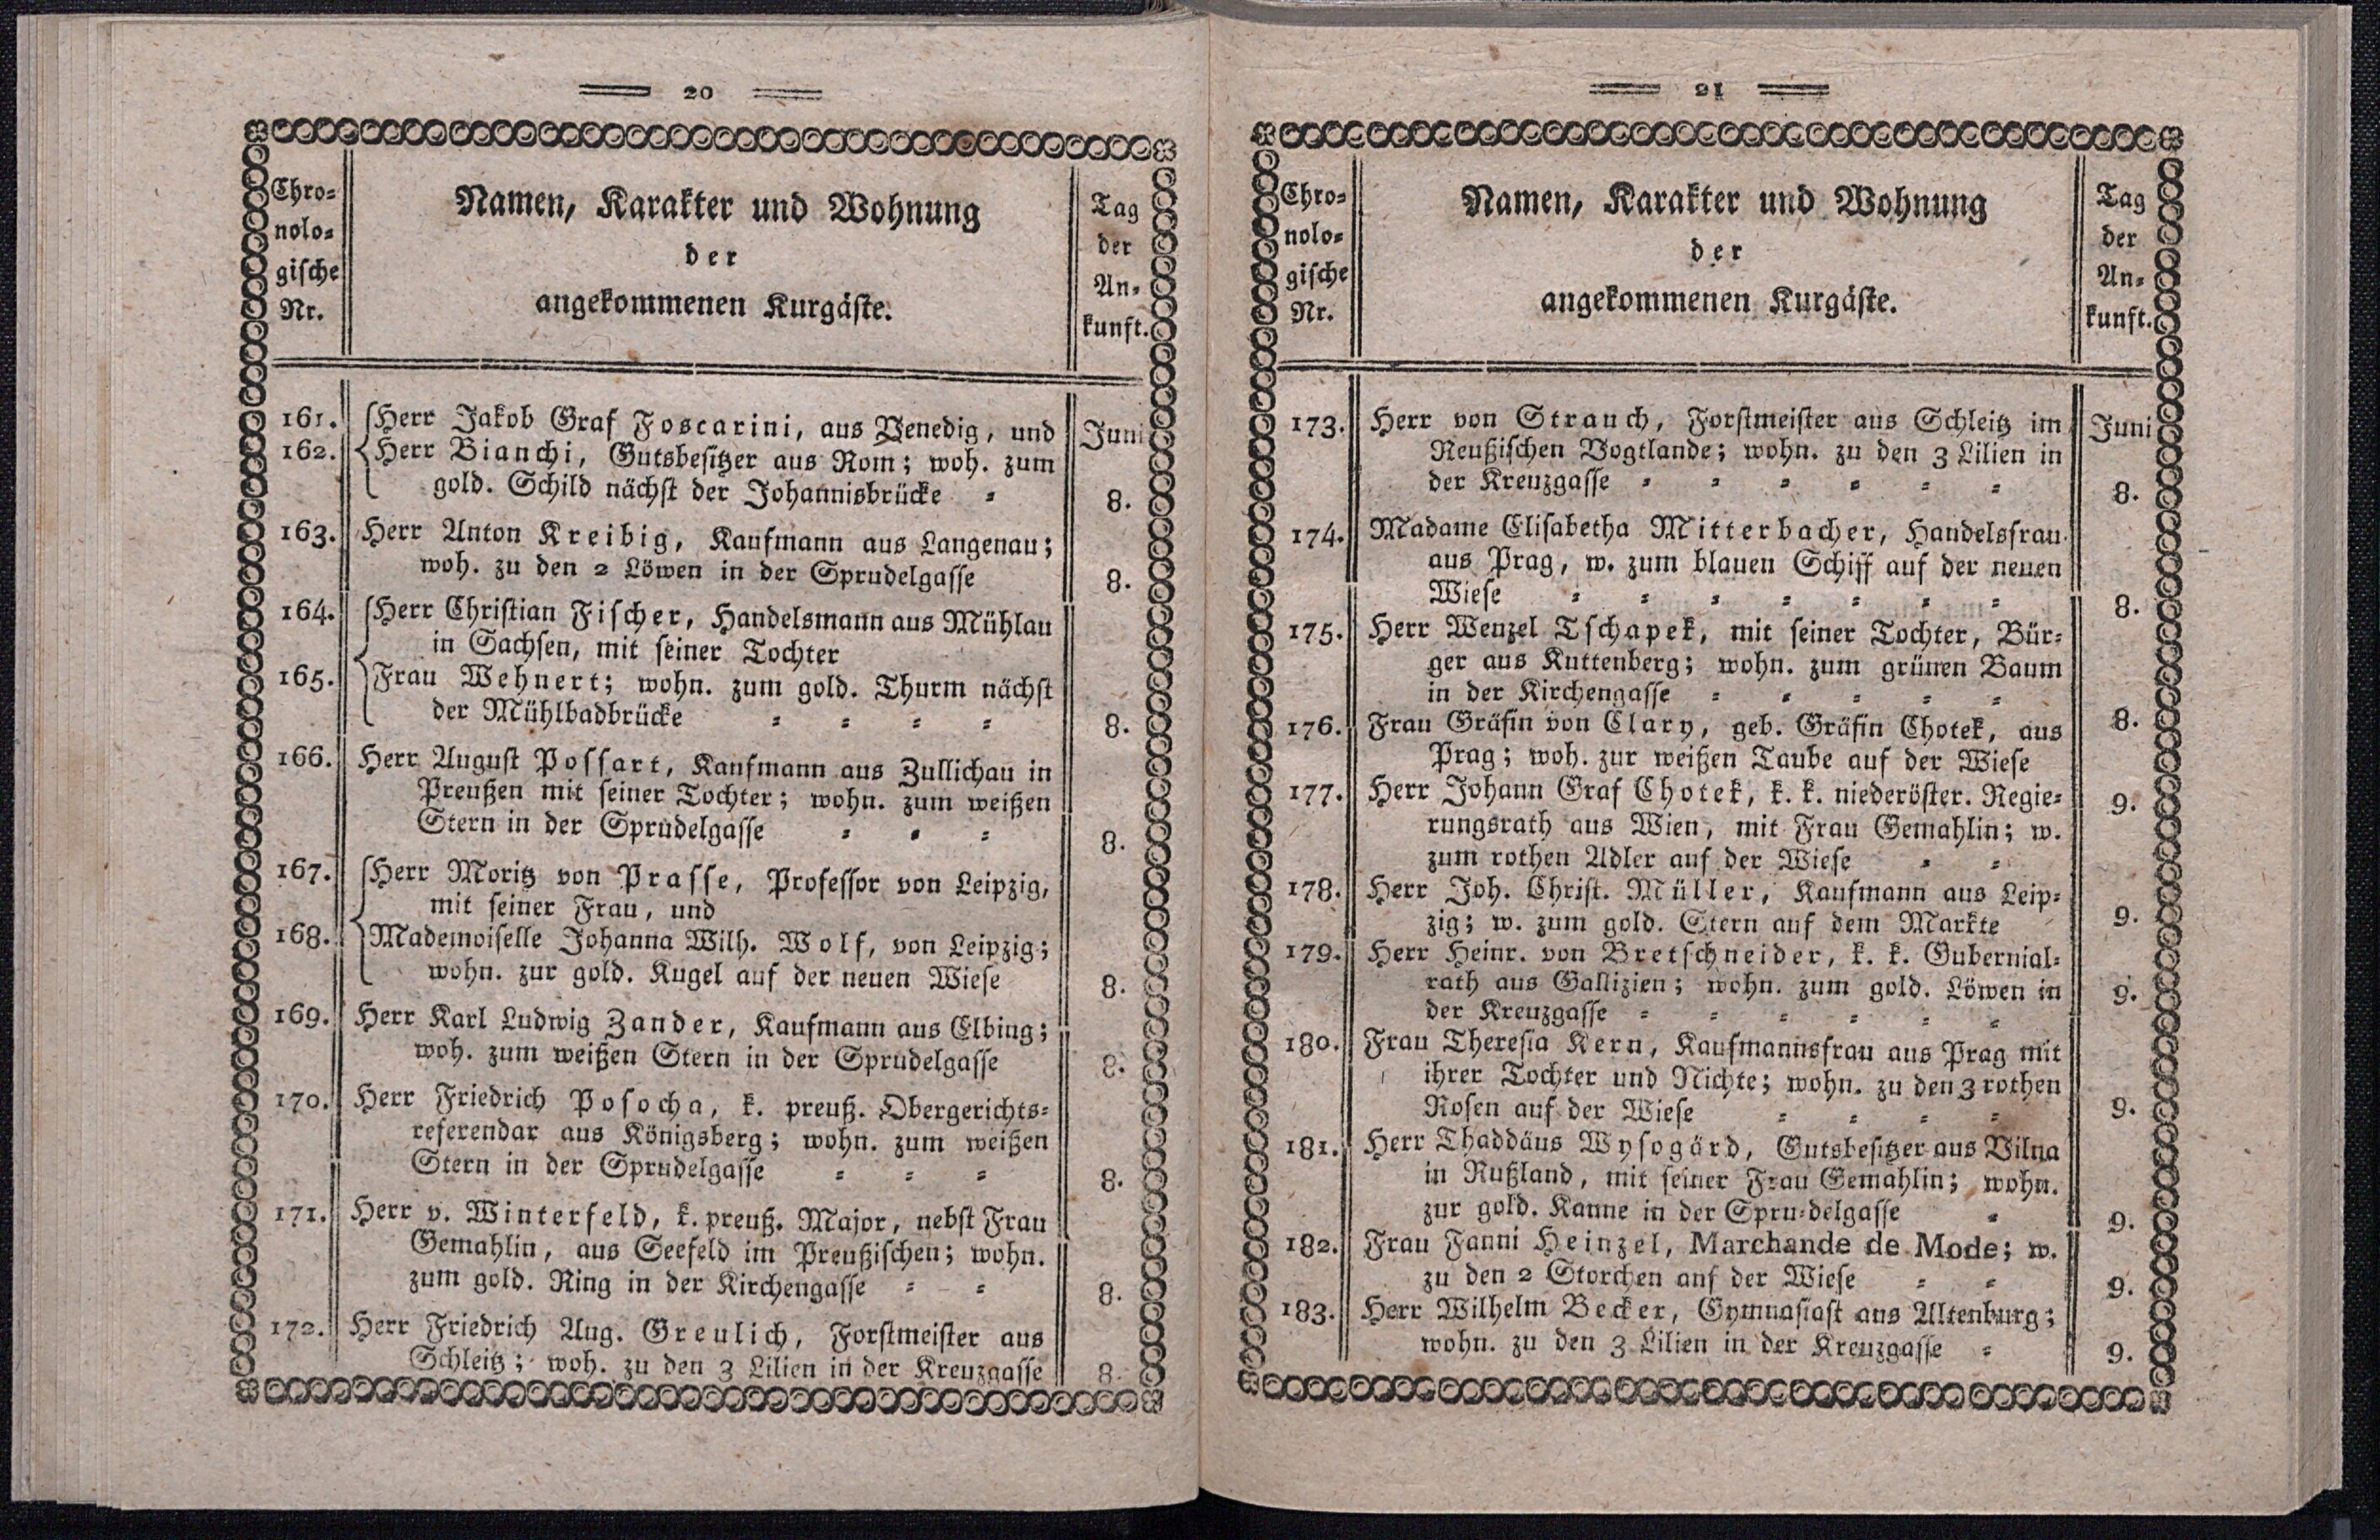 20
Chro=
nolo=
gische
Nr.
Namen, Karakter und Wohnung
der
angekommenen Kurgäste.
Tag
der
An=
kunft.
161. Herr Jakob Graf Foscarini, aus Venedig, und Juni
162. Herr Bianchi, Gutsbesitzer aus Rom; woh. zum
gold. Schild nächst der Johannisbrücke = 8.
163. Herr Anton Kreibig, Kaufmann aus Langenau;
woh. zu den 2 Löwen in der Sprudelgasse 8.
164. Herr Christian Fischer, Handelsmann aus Mühlau
in Sachsen, mit seiner Tochter
165. Frau Wehnert; wohn. zum gold. Thurm nächst
der Mühlbadbrücke = = = = 8.
166. Herr August Possart, Kaufmann aus Zullichau in
Preußen mit seiner Tochter; wohn. zum weißen
Stern in der Sprudelgasse = = = 8.
167. Herr Moritz von Prasse, Professor von Leipzig,
mit seiner Frau, und
168. Mademoiselle Johanna Wilh. Wolf, von Leipzig;
wohn. zur gold. Kugel auf der neuen Wiese 8.
169. Herr Karl Ludwig Zander, Kaufmann aus Elbing;
woh. zum weißen Stern in der Sprudelgasse 8.
170. Herr Friedrich Posocha, k. preuß. Obergerichts=
referendar aus Königsberg; wohn. zum weißen
Stern in der Sprudelgasse = = = 8.
171. Herr v. Winterfeld, k. preuß. Major, nebst Frau
Gemahlin, aus Seefeld im Preußischen; wohn.
zum gold. Ring in der Kirchengasse = = 8.
172. Herr Friedrich Aug. Greulich, Forstmeister aus
Schleitz; woh. zu den 3 Lilien in der Kreuzgasse 8.
21
Chro=
nolo=
gische
Nr.
Namen, Karakter und Wohnung
der
angekommenen Kurgäste.
Tag
der
An=
kunft.
173. Herr von Strauch, Forstmeister aus Schleitz im Juni
Reußischen Vogtlande; wohn. zu den 3 Lilien in
der Kreuzgasse = = = = = = 8.
174. Madame Elisabetha Mitterbacher, Handelsfrau
aus Prag, w. zum blauen Schiff auf der neuen
Wiese = = = = = = = 8.
175. Herr Wenzel Tschapek, mit seiner Tochter, Bür=
ger aus Kuttenberg; wohn. zum grünen Baum
in der Kirchengasse = = = = = 8.
176. Frau Gräfin von Clary, geb. Gräfin Chotek, aus
Prag; woh. zur weißen Taube auf der Wiese 9.
177. Herr Johann Graf Chotek, k. k. niederöster. Regie=
rungsrath aus Wien, mit Frau Gemahlin; w.
zum rothen Adler auf der Wiese = = 9.
178. Herr Joh. Christ. Müller, Kaufmann aus Leip=
zig; w. zum gold. Stern auf dem Markte 9.
179. Herr Heinr. von Bretschneider, k. k. Gubernial=
rath aus Gallizien; wohn. zum gold. Löwen in
der Kreuzgasse = = = = = =
180. Frau Theresia Kern, Kaufmannsfrau aus Prag mit
ihrer Tochter und Nichte; wohn. zu den 3 rothen
Rosen auf der Wiese = = = = 9.
181. Herr Thaddäus Wysogärd, Gutsbesitzer aus Vilna
in Rußland, mit seiner Frau Gemahlin; wohn.
zur gold. Kanne in der Spru=delgasse = 9.
182. Frau Fanni Heinzel, Marchande de Mode; w.
zu den 2 Storchen auf der Wiese = = 9.
183. Herr Wilhelm Becker, Gymnasiast aus Altenburg;
wohn. zu den 3 Lilien in der Kreuzgasse = 9.